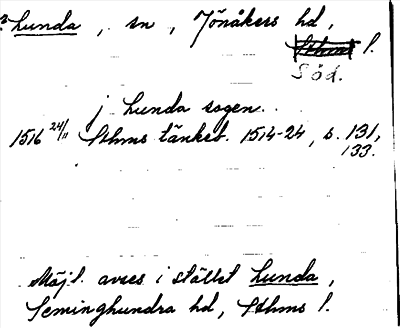 ? Lunda, sn, Jönåkers hd,
Sthms l.
Söd.
j Lunda sogen..
1516 24/11 Sthms tänkeb. 1514-24, s. 131,
133.
Möjl. avses i stället Lunda,
Seminghundra hd, Sthms l.